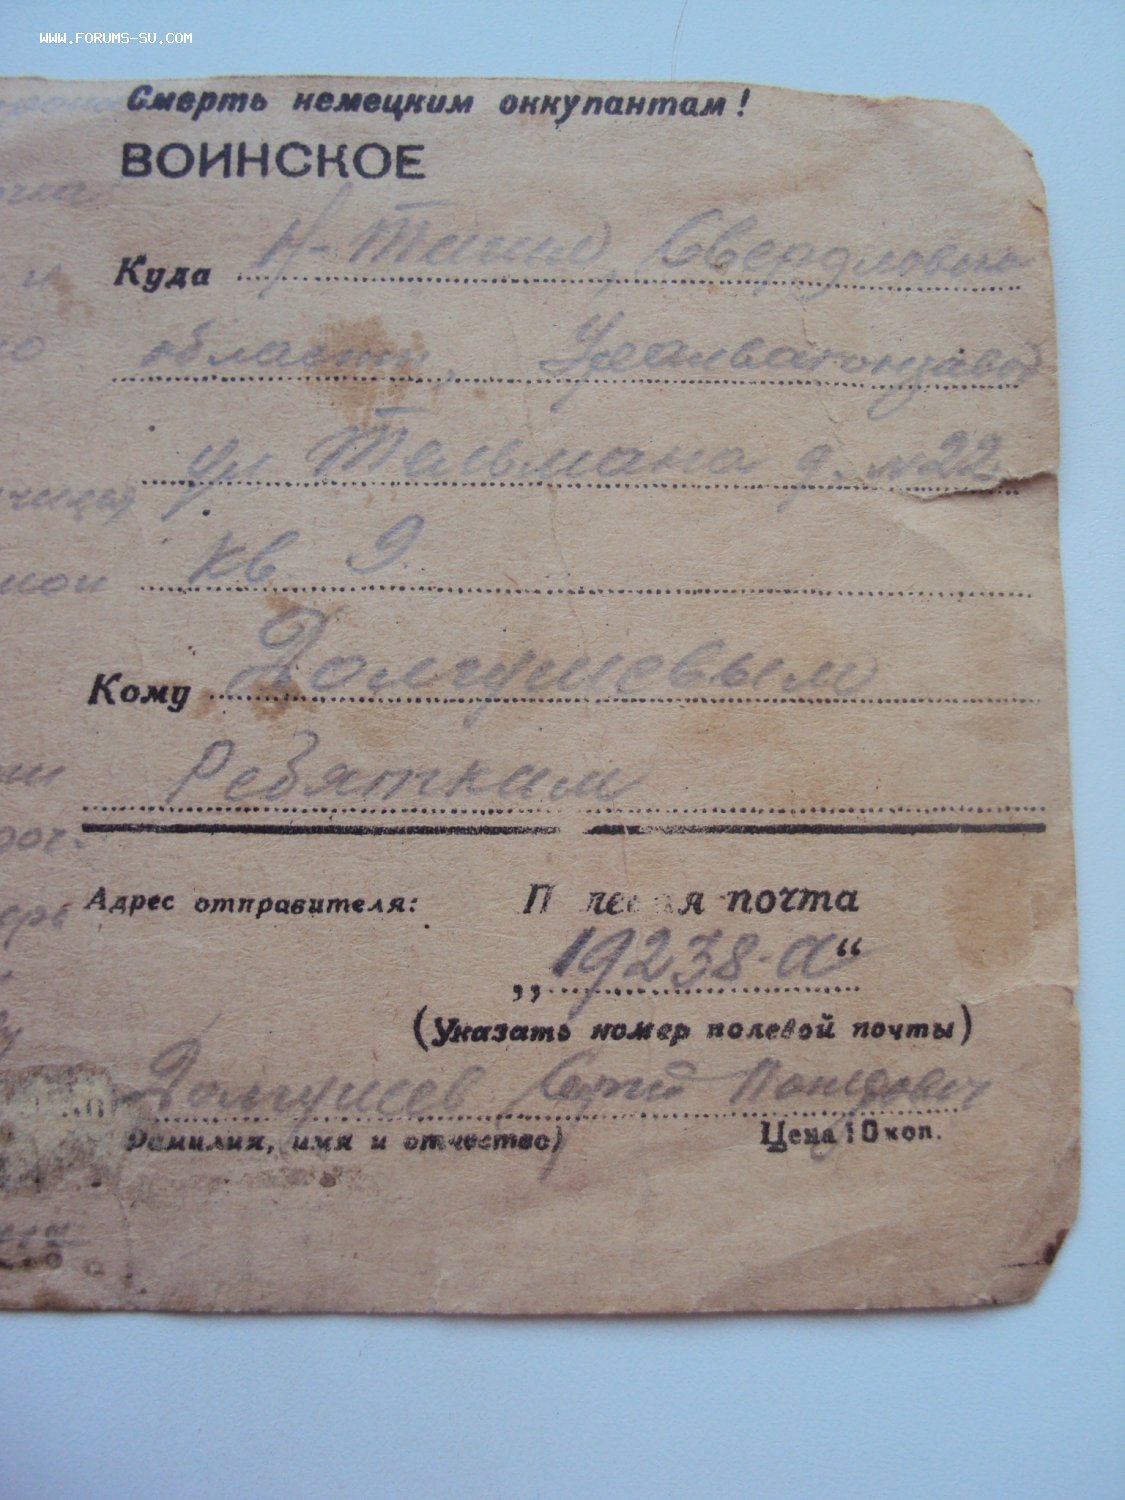 WWW.FORUMS-SU.COM
Смерть немецким оккупантам!
ВОИНСКОЕ
Куда Н-Тагил, Свердловской
области, Уралвагонзавод
ул Тельмана д. №22
кв. 9.
Кому Долгушевым
Ребяткам
Адрес отправителя: Полевая почта
„19238-а“
(Указать номер полевой почты)
Долгушев Сергей
Фамилия, имя и отчество) Цена 10 коп.